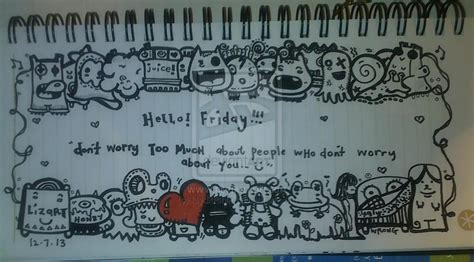 JUICE!
Hello! Friday!!!
"don't worry Too MUCH about people who don't worry
about you
LIZART
HONEY
WRONG
12.7.13